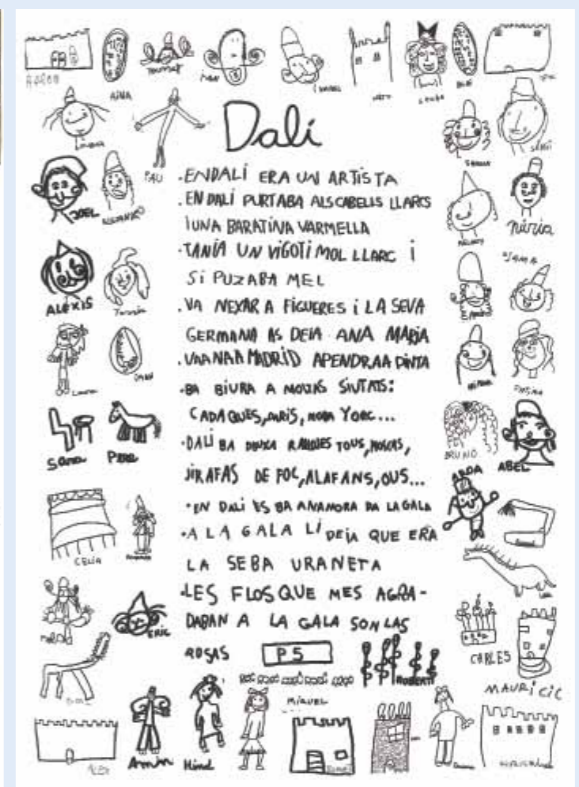 Dalí
·ENDALÍ ERA UN ARTISTA
·EN DALÍ PURTABA ALS CABELLS LLARCS
IUNA BARATINA VARMELLA
·TANÍA UN VIGOTI MOL LLARC I
SI PUZABA MEL
·VA NEXAR A FIGUERES I LA SEVA
GERMANA AS DEIA ANA MARIA
·VAANAA MADRID APENDRAA PINTA
·BA BIURA A MOLTAS SIUTATS:
CADAQUES, PARÍS, NOBA YORC...
·DALÍ BA RANLLES TOUS, MOSCAS,
JIRAFAS DE FOC, ALAFANS, OUS...
·EN DALI ES BA ANAMORA DA LAGALA
·A LA GALA LI DEIA QUE ERA
LA SEBA URANETA
·LES FLOS QUE MES AGRA-
DABAN A LA GALA SON LAS
ROSAS
P5
AINA
PAU
JOEL
ALÈXIS
Laura
Sara
Pere
CELIA
ERIC
Amin
Hind
MIQUEL
ROBERT
CARLES
MAURICIC
ARDA
ABEL
BRUNO
núria